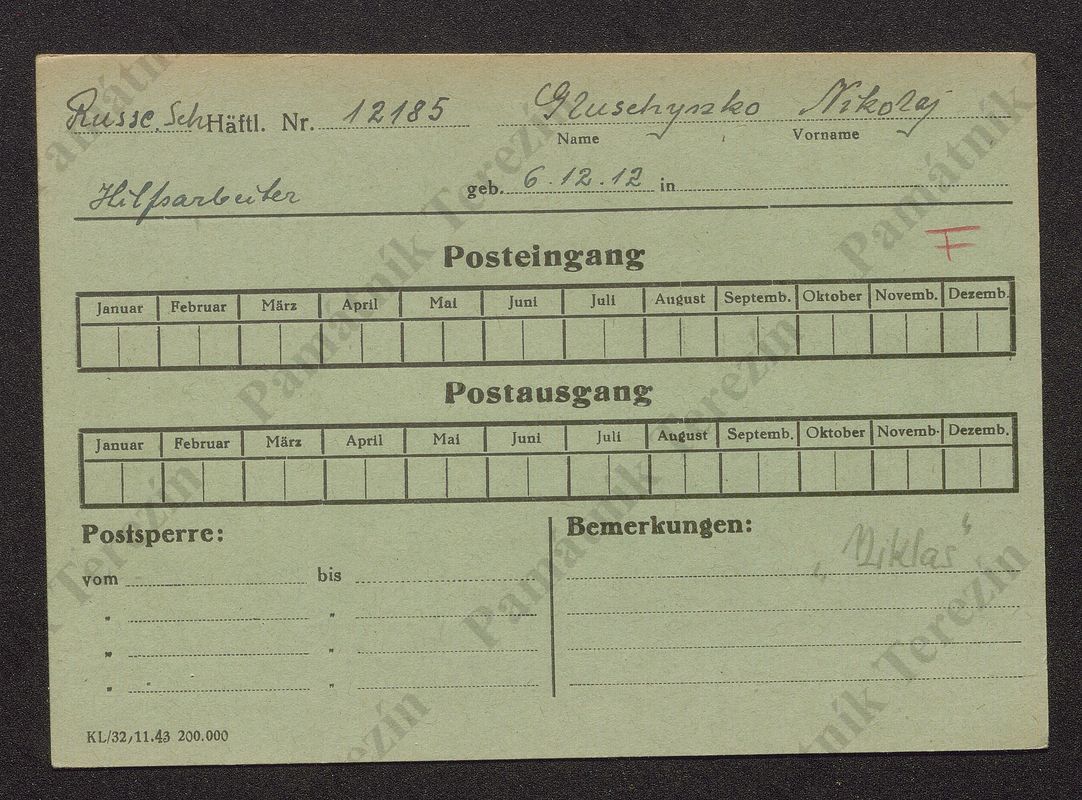 Russe. Sch Häftl. Nr. 12185 Gluschyszko Nikolaj
Name Vorname
Hilfsarbeiter geb. 6.12.12 in
F
Posteingang
Januar Februar März April Mai Juni Juli August Septemb. Oktober Novemb. Dezemb.
Postausgang
Januar Februar März April Mai Juni Juli August Septemb. Oktober Novemb. Dezemb.
Postsperre: Bemerkungen:
vom bis „Niklas“
" "
" "
" "
KL/32, 11.43 200.000
Památník Terezín